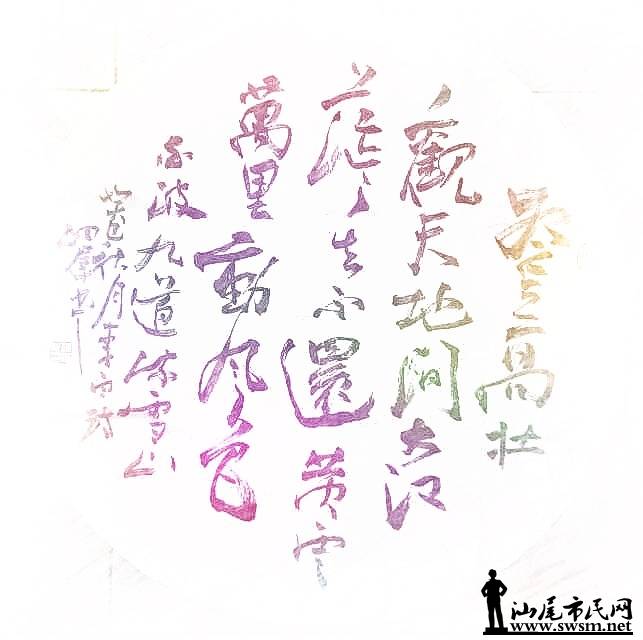 登高壮
觀天地間大江
茫々去不還黄雲
萬里動風色
白波九道流雪山
秋月李白詩
書
汕尾市民网
www.swsm.net